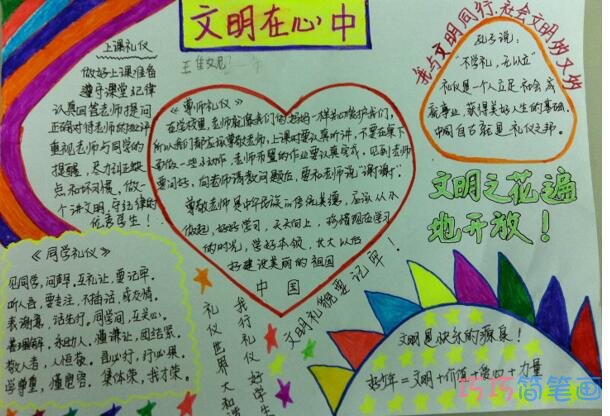 文明在心中
上课礼仪
做好上课准备
遵守课堂纪律
认真回答老师提问
正确对待老师的批评
重视老师与同学的
提醒，尽力纠正缺
点和坏习惯。做一
个讲文明，守纪律的
优秀学生！
《尊师礼仪》
在学校里，老师就像我们的爸妈一样关心爱护我们，
所以我们都应该尊敬老师，上课时要认真听讲，不要在桌下
老师布置的作业要认真完成，见到老师
要问好，向老师请教问题后，要和老师说"谢谢"。
尊敬老师是中华民族的传统美德，应该从小
做起，好好学习，天天向上，珍惜现在学习
的时光，学好本领，长大以后
好建设美丽的祖国
中国
我与文明同行，社会文明
孔子说：
"不学礼，无以立"
礼仪是一个人立足社会，成
就事业，获得美好人生的基础。
中国自古就是礼仪之邦。
文明之花遍
地开放！
《同学礼仪》
见同学，问声早，互礼让，要记牢。
听人言，要专注，不插话，
表谢意，话先行。同学间，互关心。
善理解，和助人，懂谦让，团结紧。
敬人者，人恒敬。言必行，行必果。
尊重，懂宽容。集体荣，我才荣。
礼仪世界大和谐
我行礼仪好学生
文明礼貌要记牢！
文明是快乐的源泉！
好少年＝文明＋价值＋爱心＋力量
巧巧简笔画